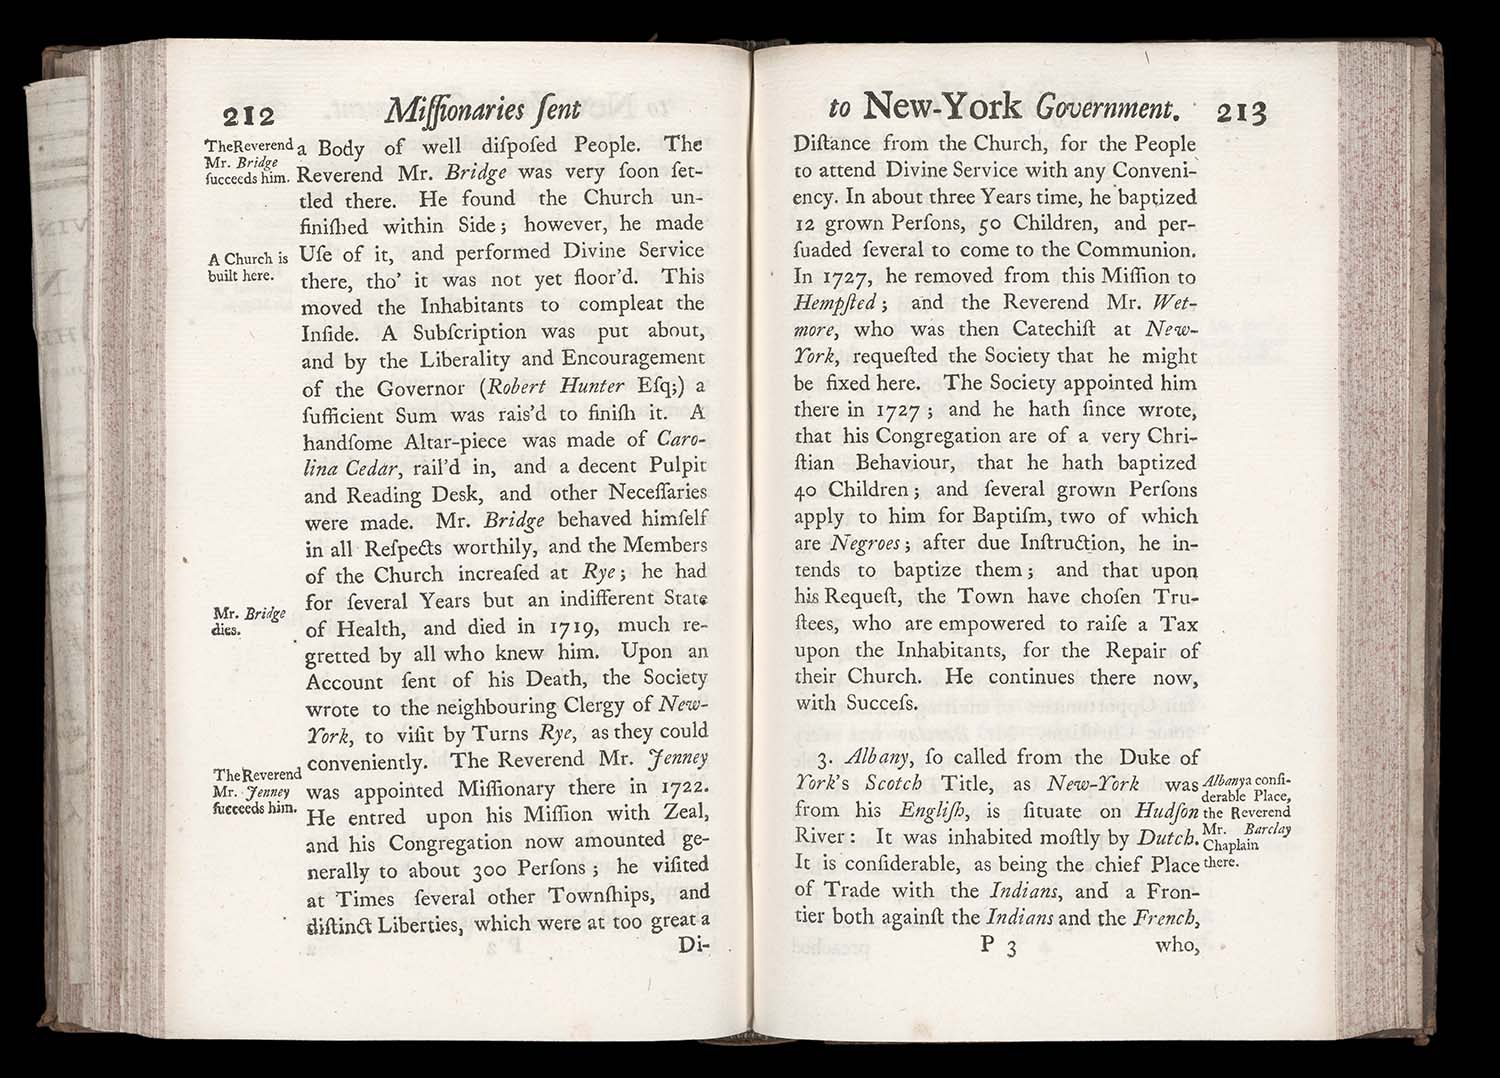 212
Miſſionaries ſent
TheReverend
Mr. Bridge
ſucceeds him.
a Body of well diſpoſed People. The
Reverend Mr. Bridge was very ſoon ſet-
tled there. He found the Church un-
finiſhed within Side; however, he made
A Church is
built here.
Uſe of it, and performed Divine Service
there, tho' it was not yet floor'd. This
moved the Inhabitants to compleat the
Inſide. A Subſcription was put about,
and by the Liberality and Encouragement
of the Governor (Robert Hunter Eſq;) a
ſufficient Sum was rais'd to finiſh it. A
handſome Altar-piece was made of Caro-
lina Cedar, rail'd in, and a decent Pulpit
and Reading Desk, and other Neceſſaries
were made. Mr. Bridge behaved himſelf
in all Reſpects worthily, and the Members
of the Church increaſed at Rye; he had
for ſeveral Years but an indifferent State
Mr. Bridge
dies.
of Health, and died in 1719, much re-
gretted by all who knew him. Upon an
Account ſent of his Death, the Society
wrote to the neighbouring Clergy of New-
York, to viſit by Turns Rye, as they could
conveniently. The Reverend Mr. Jenney
TheReverend
Mr. Jenney
ſucceeds him.
was appointed Miſſionary there in 1722.
He entred upon his Miſſion with Zeal,
and his Congregation now amounted ge-
nerally to about 300 Perſons; he viſited
at Times ſeveral other Townſhips, and
diſtinct Liberties, which were at too great a
Di-
to New-York Government. 213
Diſtance from the Church, for the People
to attend Divine Service with any Conveni-
ency. In about three Years time, he baptized
12 grown Perſons, 50 Children, and per-
ſuaded ſeveral to come to the Communion.
In 1727, he removed from this Miſſion to
Hempſted; and the Reverend Mr. Wet-
more, who was then Catechiſt at New-
York, requeſted the Society that he might
be fixed here. The Society appointed him
there in 1727; and he hath ſince wrote,
that his Congregation are of a very Chri-
ſtian Behaviour, that he hath baptized
40 Children; and ſeveral grown Perſons
apply to him for Baptiſm, two of which
are Negroes; after due Inſtruction, he in-
tends to baptize them; and that upon
his Requeſt, the Town have choſen Tru-
ſtees, who are empowered to raiſe a Tax
upon the Inhabitants, for the Repair of
their Church. He continues there now,
with Succeſs.
3. Albany, ſo called from the Duke of
York's Scotch Title, as New-York was
from his Engliſh, is ſituate on Hudſon
River: It was inhabited moſtly by Dutch.
It is conſiderable, as being the chief Place
of Trade with the Indians, and a Fron-
tier both againſt the Indians and the French,
Albany a conſi-
derable Place,
the Reverend
Mr. Barclay
Chaplain
there.
P 3
who,